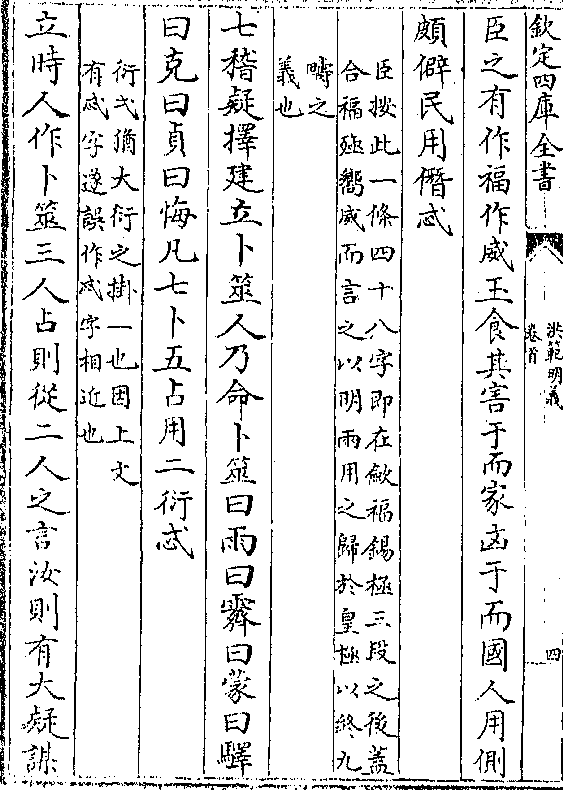 欽定四庫全書
洪範明義
卷首
四
臣之有作福作威玉食其害于而家凶于而國人用側
頗僻民用僭忒
臣按此一條四十八字即在歛福錫極三段之後蓋
合福殛嚮威而言之以明兩用之歸於皇極以終九
疇之
義也
七稽疑擇建立卜筮人乃命卜筮曰雨曰霽曰蒙曰驛
曰克曰貞曰悔凡七卜五占用二衍忒
衍弍猶大衍之掛一也因上文
有忒字遂誤作忒字相近也
立時人作卜筮三人占則從二人之言汝則有大疑謀